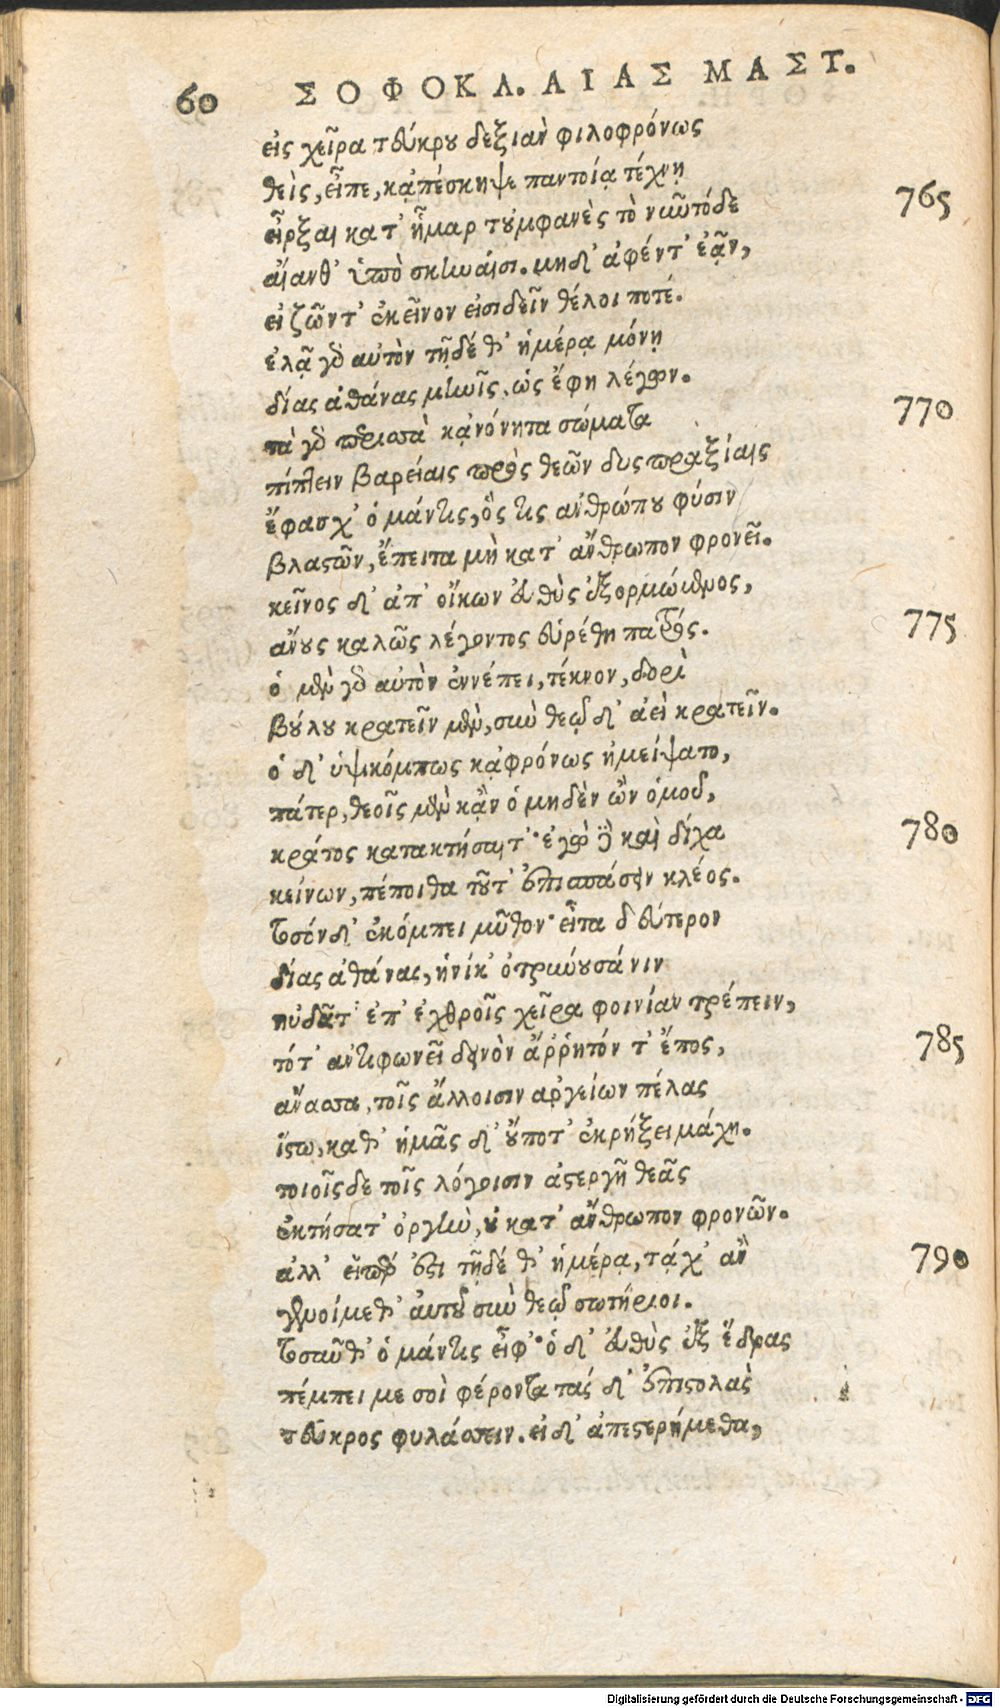 60 ΣΟΦΟΚΛ. ΑΙΑΣ ΜΑΣΤ.
εἰς χεῖρα τεύκρου δεξιὰν φιλοφρόνως
θεὶς, εἶπε, κᾀπέσκηψε παντοίᾳ τέχνῃ
εἶρξαι κατ' ἦμαρ τοὐμφανὲς τὸ νῦν τόδε 765
αἴανθ' ὑπὸ σκηναῖσι. μηδ' ἀφέντ' ἐᾷν,
εἰ ζῶντ' ἐκεῖνον εἰσιδεῖν θέλοι ποτέ.
ἐλᾷ γὸ αὐτὸν τῇδέ θ' ἡμέρᾳ μόνῃ
δίας ἀθάνας μῆνις, ὡς ἔφη λέγων.
τὰ γὸ περισσὰ κᾀνόνητα σώματα 770
πίπτειν βαρείαις πρὸς θεῶν δυσπραξίαις
ἔφασχ' ὁ μάντις, ὅς τις ἀνθρώπου φύσιν
βλαστῶν, ἔπειτα μὴ κατ' ἄνθρωπον φρονεῖ.
κεῖνος δ' ἀπ' οἴκων εὐθὺς ἐξορμώμενος,
ἄνους καλῶς λέγοντος εὑρέθη πατρός. 775
ὁ μὲν γὸ αὐτὸν ἐννέπει, τέκνον, δορὶ
βούλου κρατεῖν μὲν, σὺν θεῷ δ' ἀεὶ κρατεῖν.
ὁ δ' ὑψικόμπως κᾀφρόνως ἠμείψατο,
πάτερ, θεοῖς μὲν κᾂν ὁ μηδὲν ὢν ὁμοῦ,
κράτος κατακτήσαιτ'· ἐγὼ δὲ καὶ δίχα 780
κείνων, πέποιθα τοῦτ' ἐπισπάσειν κλέος.
τοσόνδ' ἐκόμπει μῦθον· εἶτα δεύτερον
δίας ἀθάνας, ἡνίκ' ὀτρύνουσά νιν
ηὐδᾶτ' ἐπ' ἐχθροῖς χεῖρα φοινίαν τρέπειν,
τότ' ἀντιφωνεῖ δεινὸν ἄῤῥητόν τ' ἔπος, 785
ἄνασσα, τοῖς ἄλλοισιν ἀργείων πέλας
ἵστω, καθ' ἡμᾶς δ' οὔποτ' ἐκρήξει μάχη.
τοιοῖςδε τοῖς λόγοισιν ἀστεργῆ θεᾶς
ἐκτήσατ' ὀργὴν, οὐ κατ' ἄνθρωπον φρονῶν.
ἀλλ' εἴπερ ἔστι τῇδέ θ' ἡμέρᾳ, τάχ' ἂν 790
γενοίμεθ' αὐτοῦ σὺν θεῷ σωτήριοι.
τοσαῦθ' ὁ μάντις εἶφ'· ὁ δ' εὐθὺς ἐξ ἕδρας
πέμπει με σοὶ φέροντα τάς δ' ἐπιστολὰς
τεῦκρος φυλάσσειν. εἰ δ' ἀπεστερήμεθα,
Digitalisierung gefördert durch die Deutsche Forschungsgemeinschaft - DFG